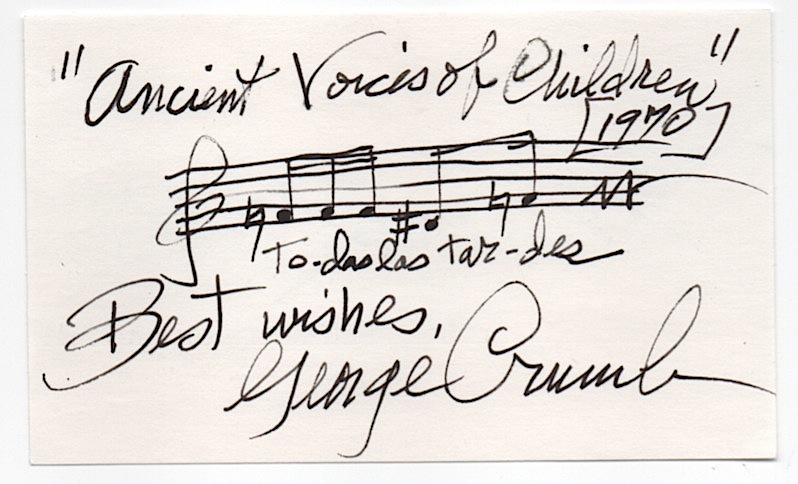 "Ancient Voices of Children"
[1970]
To-das las tar-des
Best wishes,
George Crumb